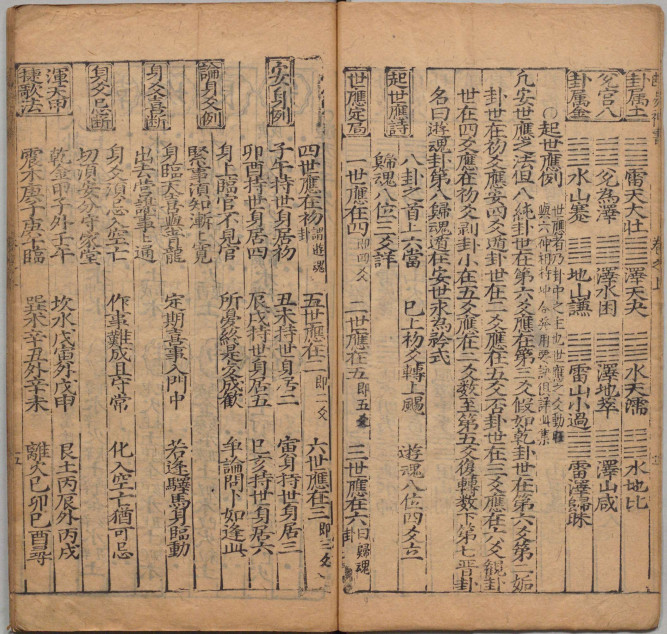 卦属土 雷天大壮 澤天夬 水天需 水地比
兌宮八 兌為澤 澤水困 澤地萃 澤山咸
卦属金 水山蹇 地山謙 雷山小過 雷澤歸妹
○起世應例 世應者乃卦中之主也世應之爻動
凡安世應之法但八純卦世在第六爻應在第三爻假如乾卦世在第六爻第二姤
卦世在初爻應安四爻遁卦世在二爻應在五爻否卦世在三爻應在六爻觀卦
世在四爻應在初爻剥卦小在五爻應在二爻数至第五爻復轉数下第七晋卦
名曰遊魂卦第八歸魂道在安世永為矜式
起世應詩 八卦之首上六當 巳上初爻轉上颺 遊魂八位四爻立
歸魂八位三爻詳
世應定局 一世應在四 即四爻 二世應在五 即五爻 三世應在六 曰歸魂卦
四世應在初 謂遊魂卦 五世應在二 即二爻 六世應在三 即三爻
安身例 子午持世身居初 丑未持世身居二 寅申持世身居三
卯酉持世身居四 辰戌持世身居五 巳亥持世身居六
論身爻例 身上臨官不見官 所憂終是変成歡 爭論問卜如逢此
緊事須知漸上寬
身爻喜断 身臨天喜與青龍 定期喜事入門中 若逢驛馬身臨動
出去営謀事上通
身爻忌断 身爻須忌入空亡 作事難成且守常 化入空亡猶可忌
切須安分守家堂
渾天甲 乾金甲子外壬午 坎水戊寅外戊申 艮土丙辰外丙戌
捷歌法 震木庚子庚午臨 巽木辛丑外辛未 離火巳卯巳酉尋